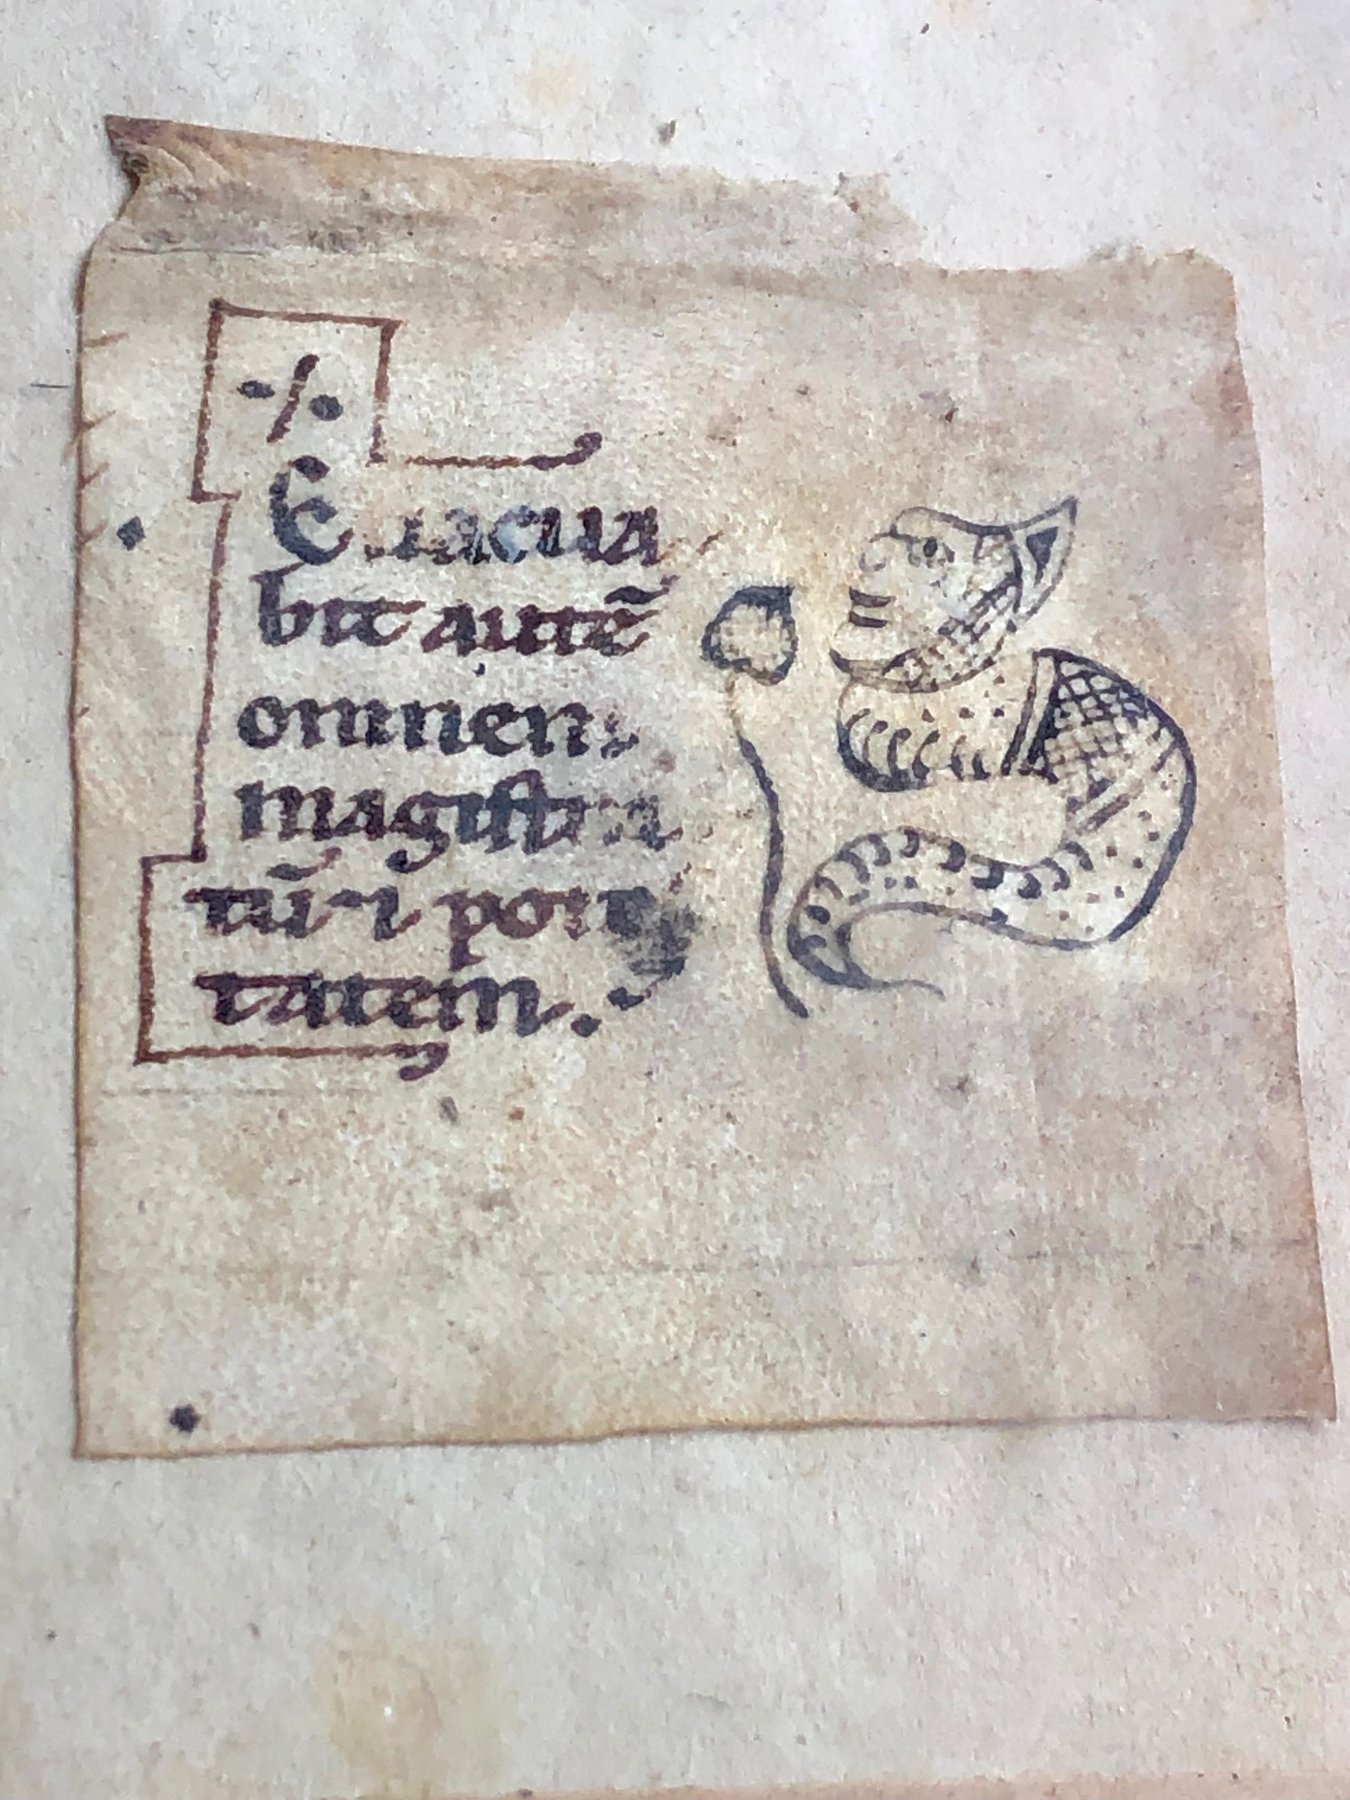 Euacua
bit autē
omnem
magiſtra
tū ·i· poteſ
tatem.